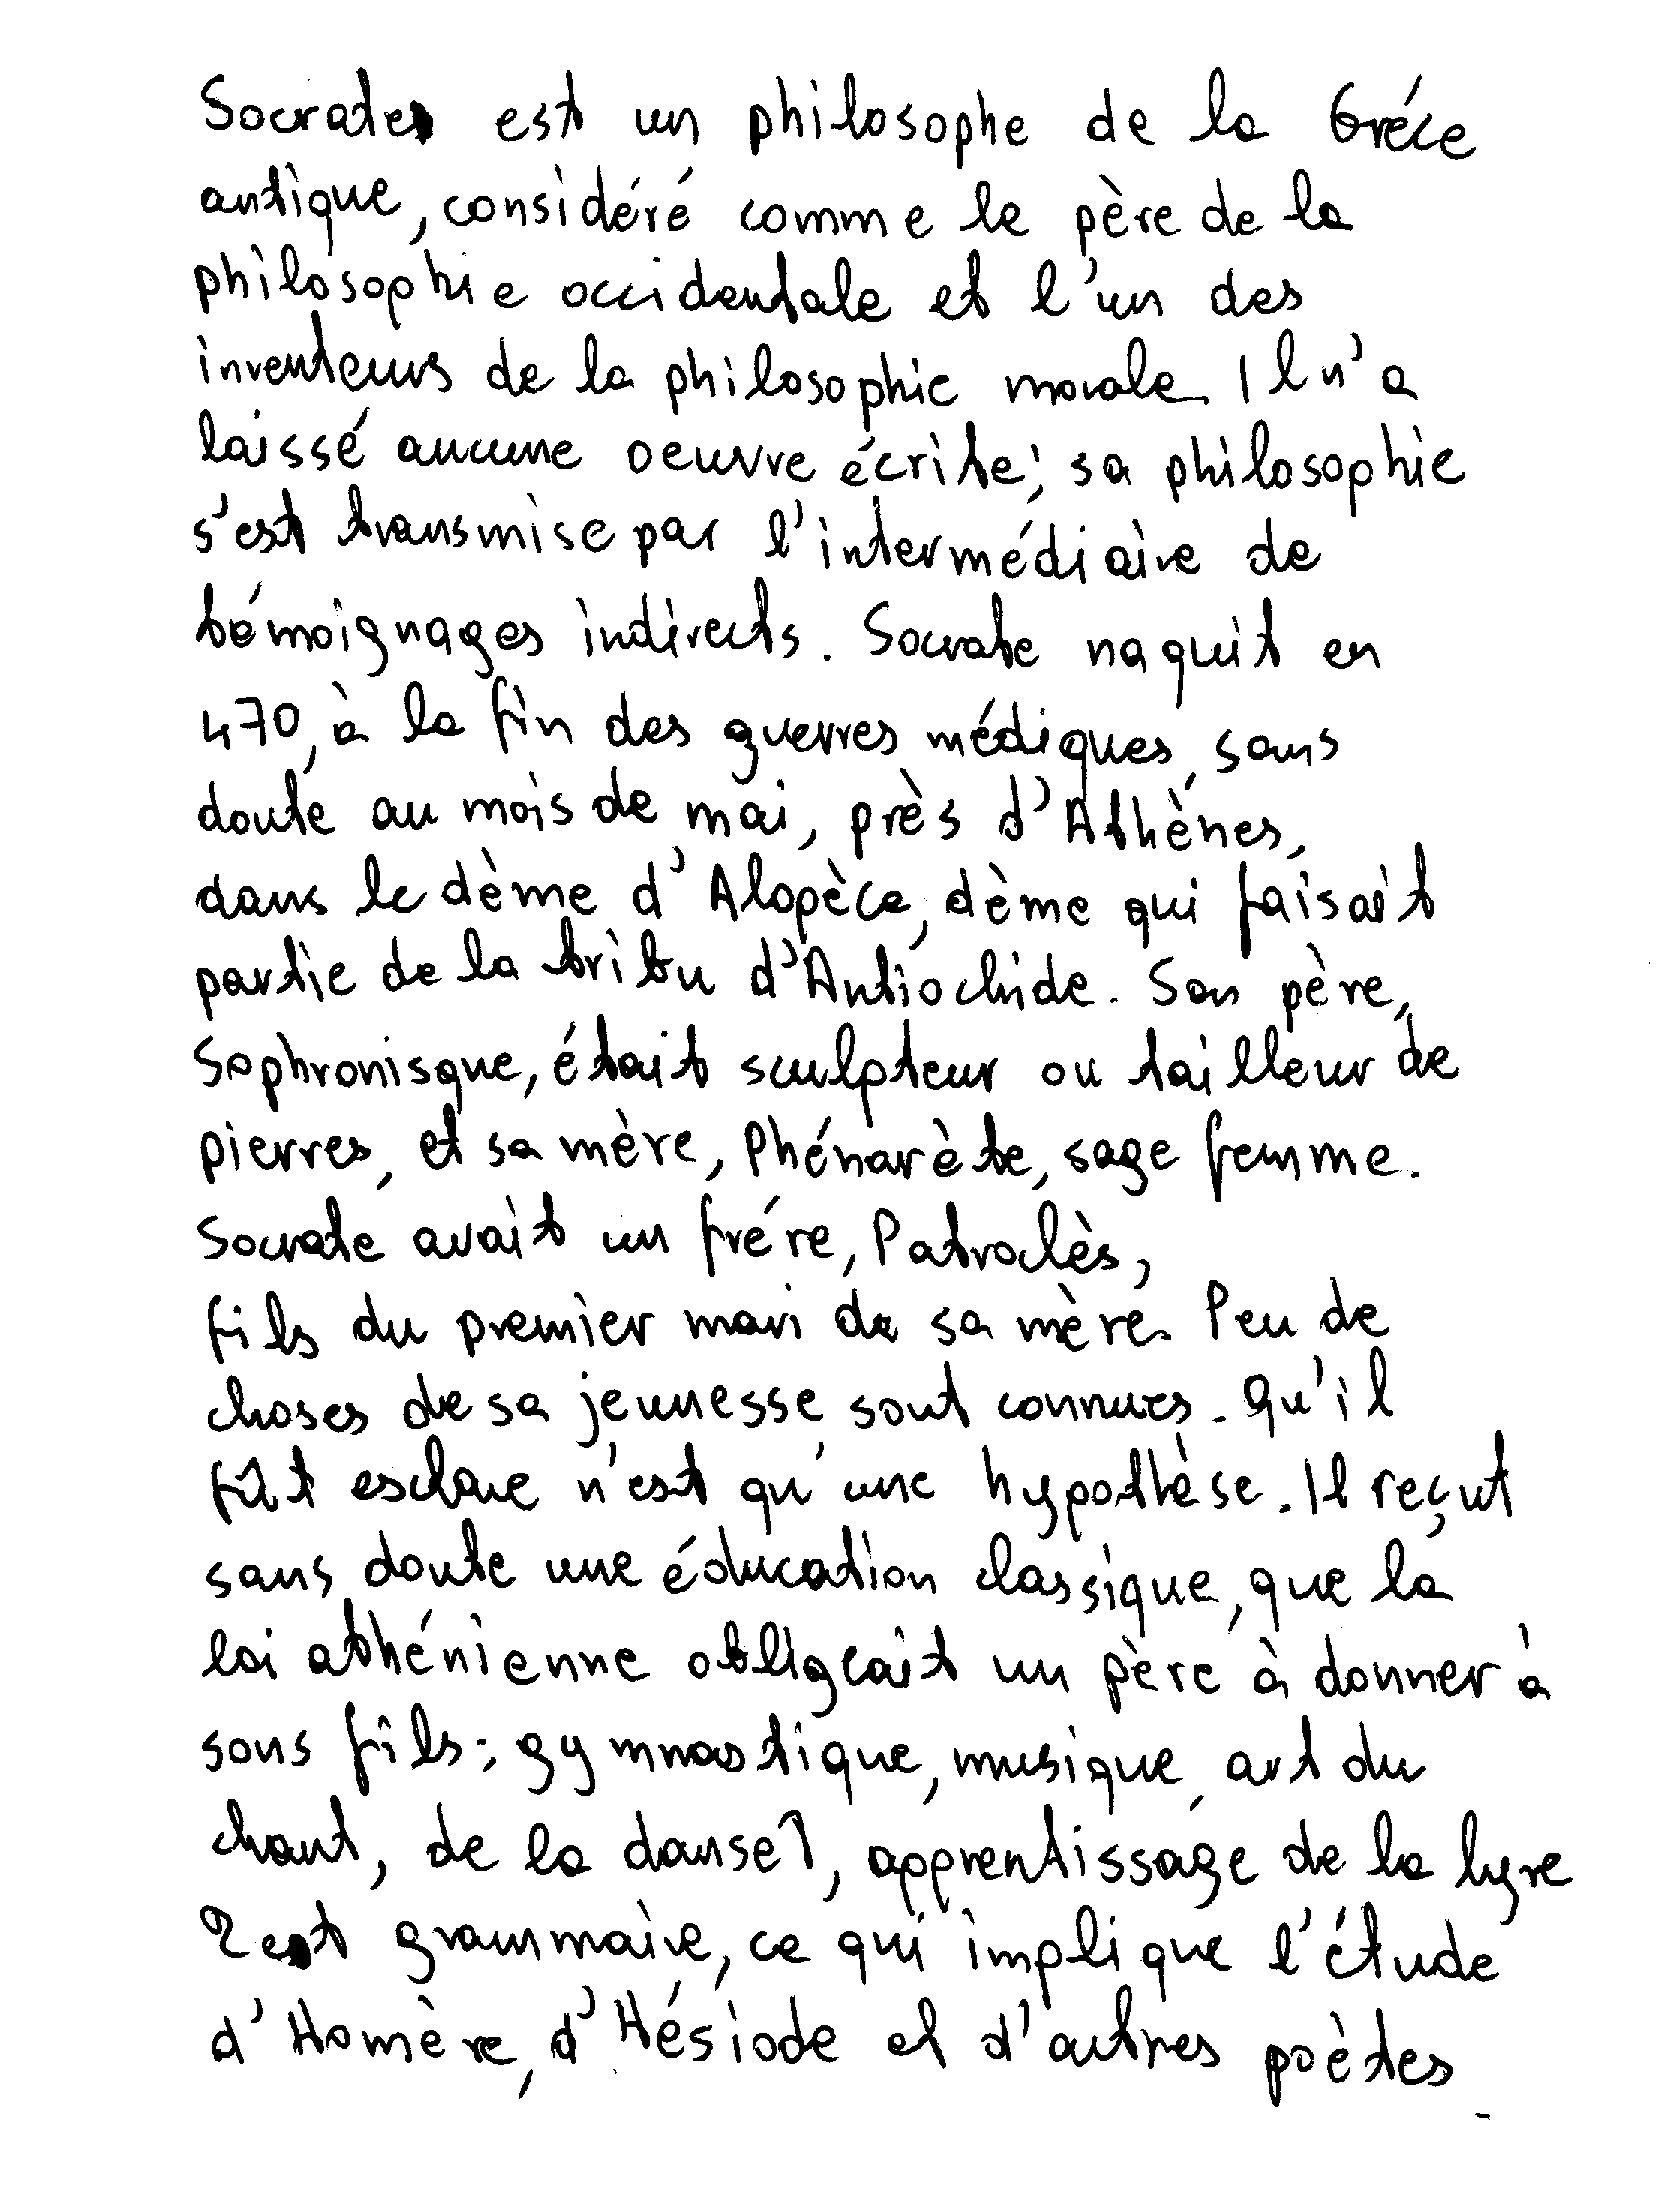 Socrates est un philosophe de la Gréce
antique, considéré comme le père de la
philosophie occidentale et l'un des
inventeurs de la philosophie morale. Il n'a
laissé aucune oeuvre écrite; sa philosophie
s'est transmise par l'intermédiaire de
témoignages indirects. Socrate naquit en
470, à la fin des guerres médiques, sans
doute au mois de mai, près d'Athènes,
dans le dème d'Alopèce, dème qui faisait
partie de la tribu d'Antiochide. Son père,
Sophronisque, était sculpteur ou tailleur de
pierres, et sa mère, Phénarète, sage femme.
Socrate avait un frére, Patroclès,
fils du premier mari de sa mère. Peu de
choses de sa jeunesse sont connues. Qu'il
fût esclave n'est qu'une hypothèse. Il reçut
sans doute une éducation classique, que la
loi athénienne obligeait un père à donner à
sons fils: gymnastique, musique, art du
chant, de la danse], apprentissage de la lyre
2 est grammaire, ce qui implique l'étude
d'Homère, d'Hésiode et d'autres poètes.